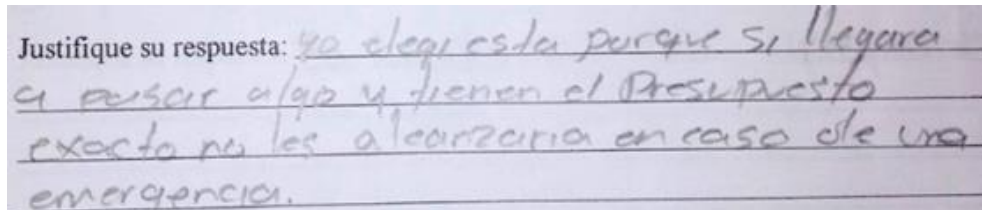 Justifique su respuesta: yo elegi esta porque si llegara
a pasar algo y tienen el Presupuesto
exacto no les alcanzaria en caso de una
emergencia.